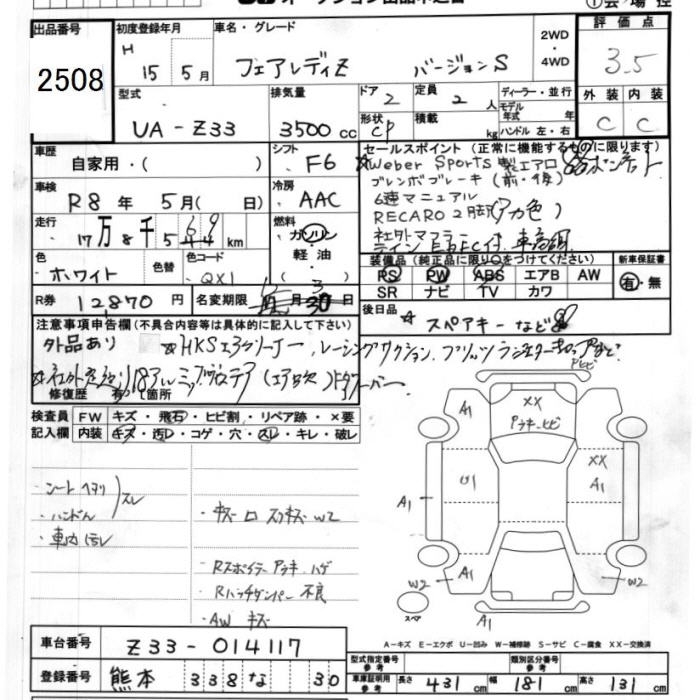 出品番号
2508
初度登録年月
H 15 5月
車名・グレード
フェアレディZ バージョンS
2WD
・
4WD
評価点
3.5
外装 内装
C C
型式
UA-Z33
排気量
3500cc
ドア 2
形状 CP
定員 2人
積載 kg
ディーラー・並行
モデル年式 年式
ハンドル 左・右
車歴
自家用・( )
シフト
F6
車検
R8年 5月( 日)
冷房
AAC
走行
17万8千569km
燃料
ガソリン
・
軽油
・
( )
色
ホワイト
色替
色コード
QX1
R券 12870円
名変期限
セールスポイント (正常に機能するものに限ります)
☆Weber Sports製エアロ ボンネット
ブレンボブレーキ(前・後)
6速マニュアル
RECARO2脚(アカ色)
社外マフラー
テイン EDFC付 車高調
装備品(純正品に限り○をつけてください)
PS PW ABS エアB AW
SR ナビ TV カワ
新車保証書
有・無
後日品
☆ スペアキーなど
注意事項申告欄(不具合内容等は具体的に記入して下さい)
外品あり ☆HKSエアクリーナー、レーシングサクション
修復歴 有( )箇所
検査員記入欄
FW キズ・飛石・ヒビ割・リペア跡・×要
内装 キズ・汚レ・コゲ・穴・スレ・キレ・破レ
・シートヘタリ
・ハンドル スレ
・車内汚レ
・キズ ロ スリキズ W2
・Rスポイラー クラッキ ハゲ
・Rハッチダンパー 不良
・AW キズ
A1
XX
クラッキ ヒビ
U1
XX
A1
A1
A1
W2
A1
W2
A1
スペア
A-キズ E-エクボ U-凹み W-補修跡 S-サビ C-腐食 XX-交換済
車台番号
Z33-014117
登録番号
熊本 338 な 30
型式指定番号 参考
類別区分番号 参考
車庫証明用 参考
長さ 431cm
幅 181cm
高さ 131cm